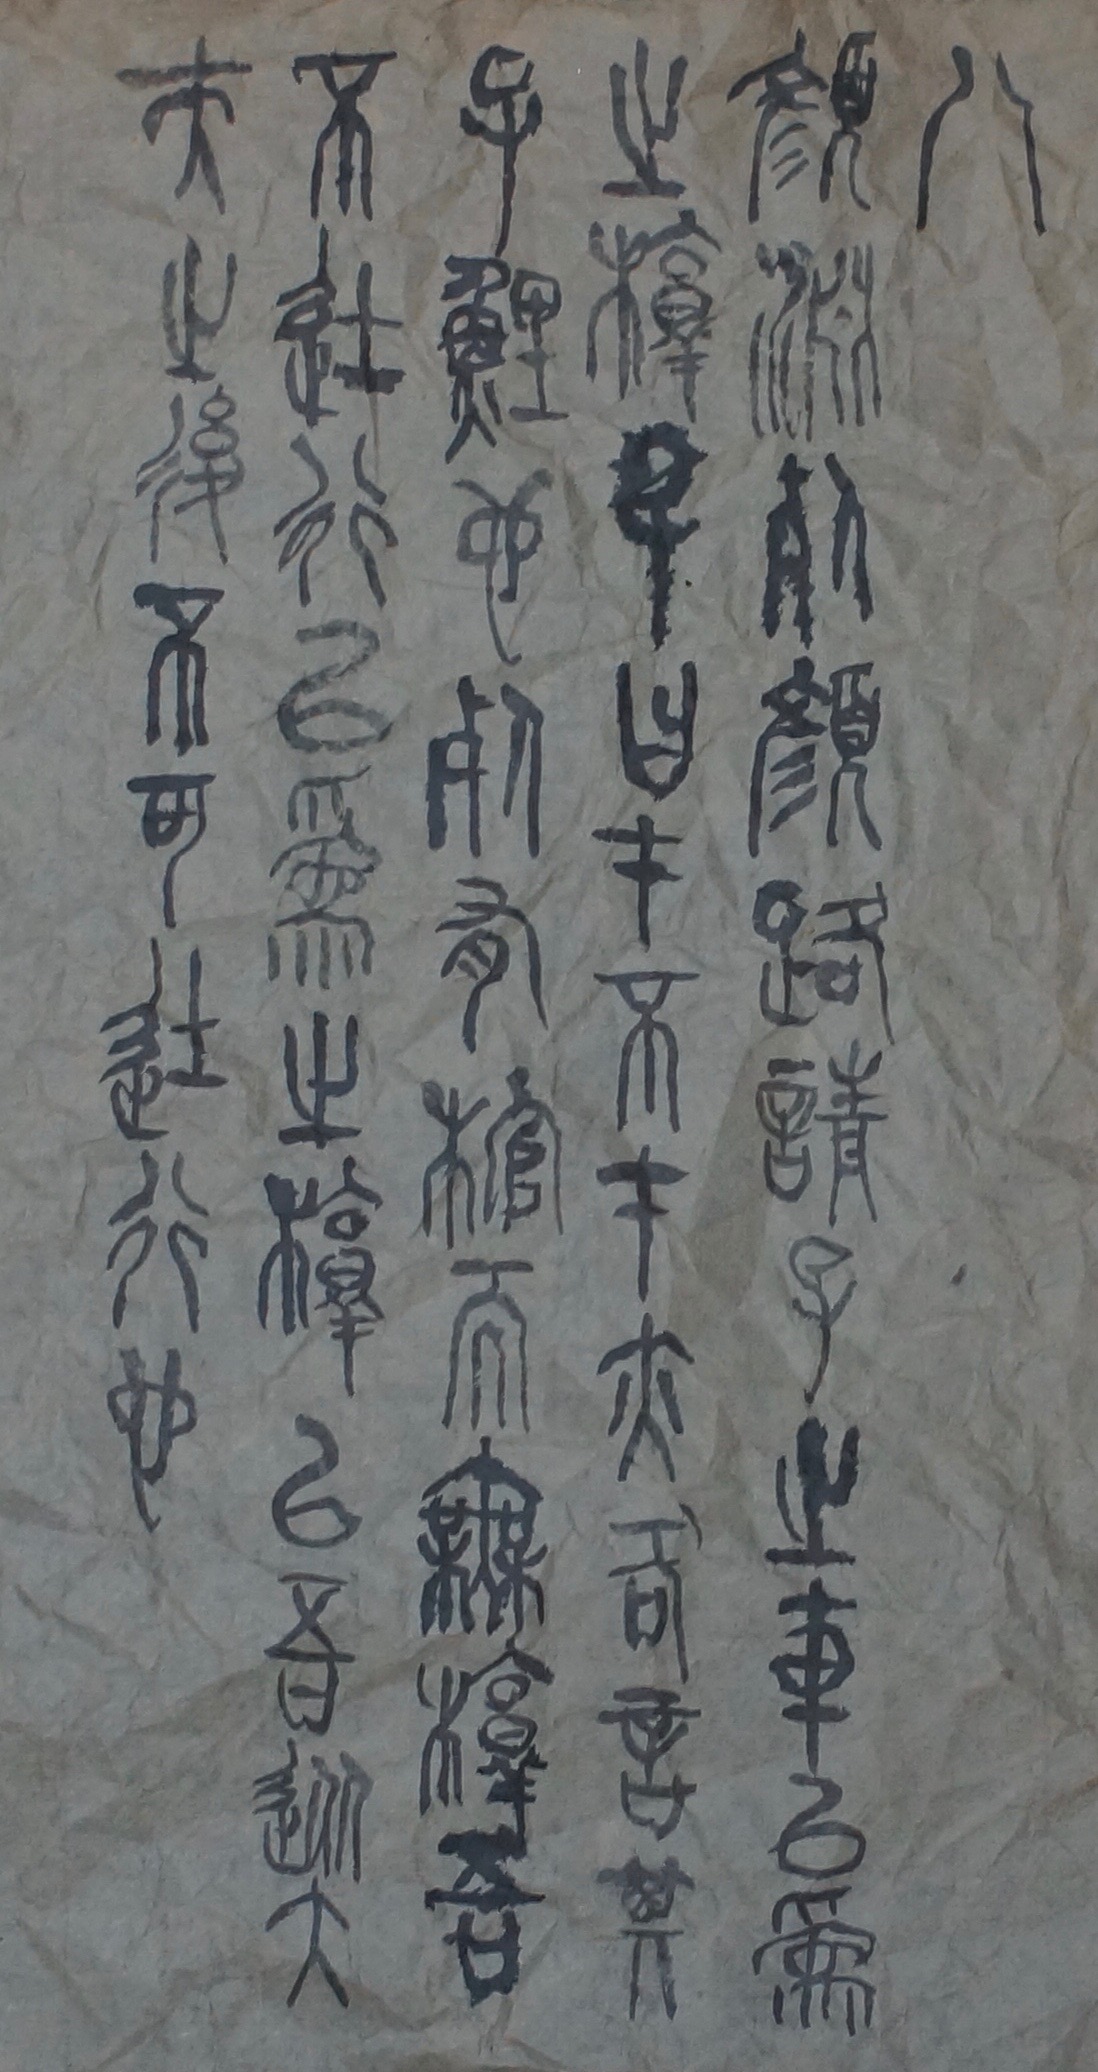 八
顏淵死顏路請子之車以為
之椁子曰才不才亦各言其
子鯉也死有棺而無椁吾
不徒行以為之椁以吾從大
夫之後不可徒行也